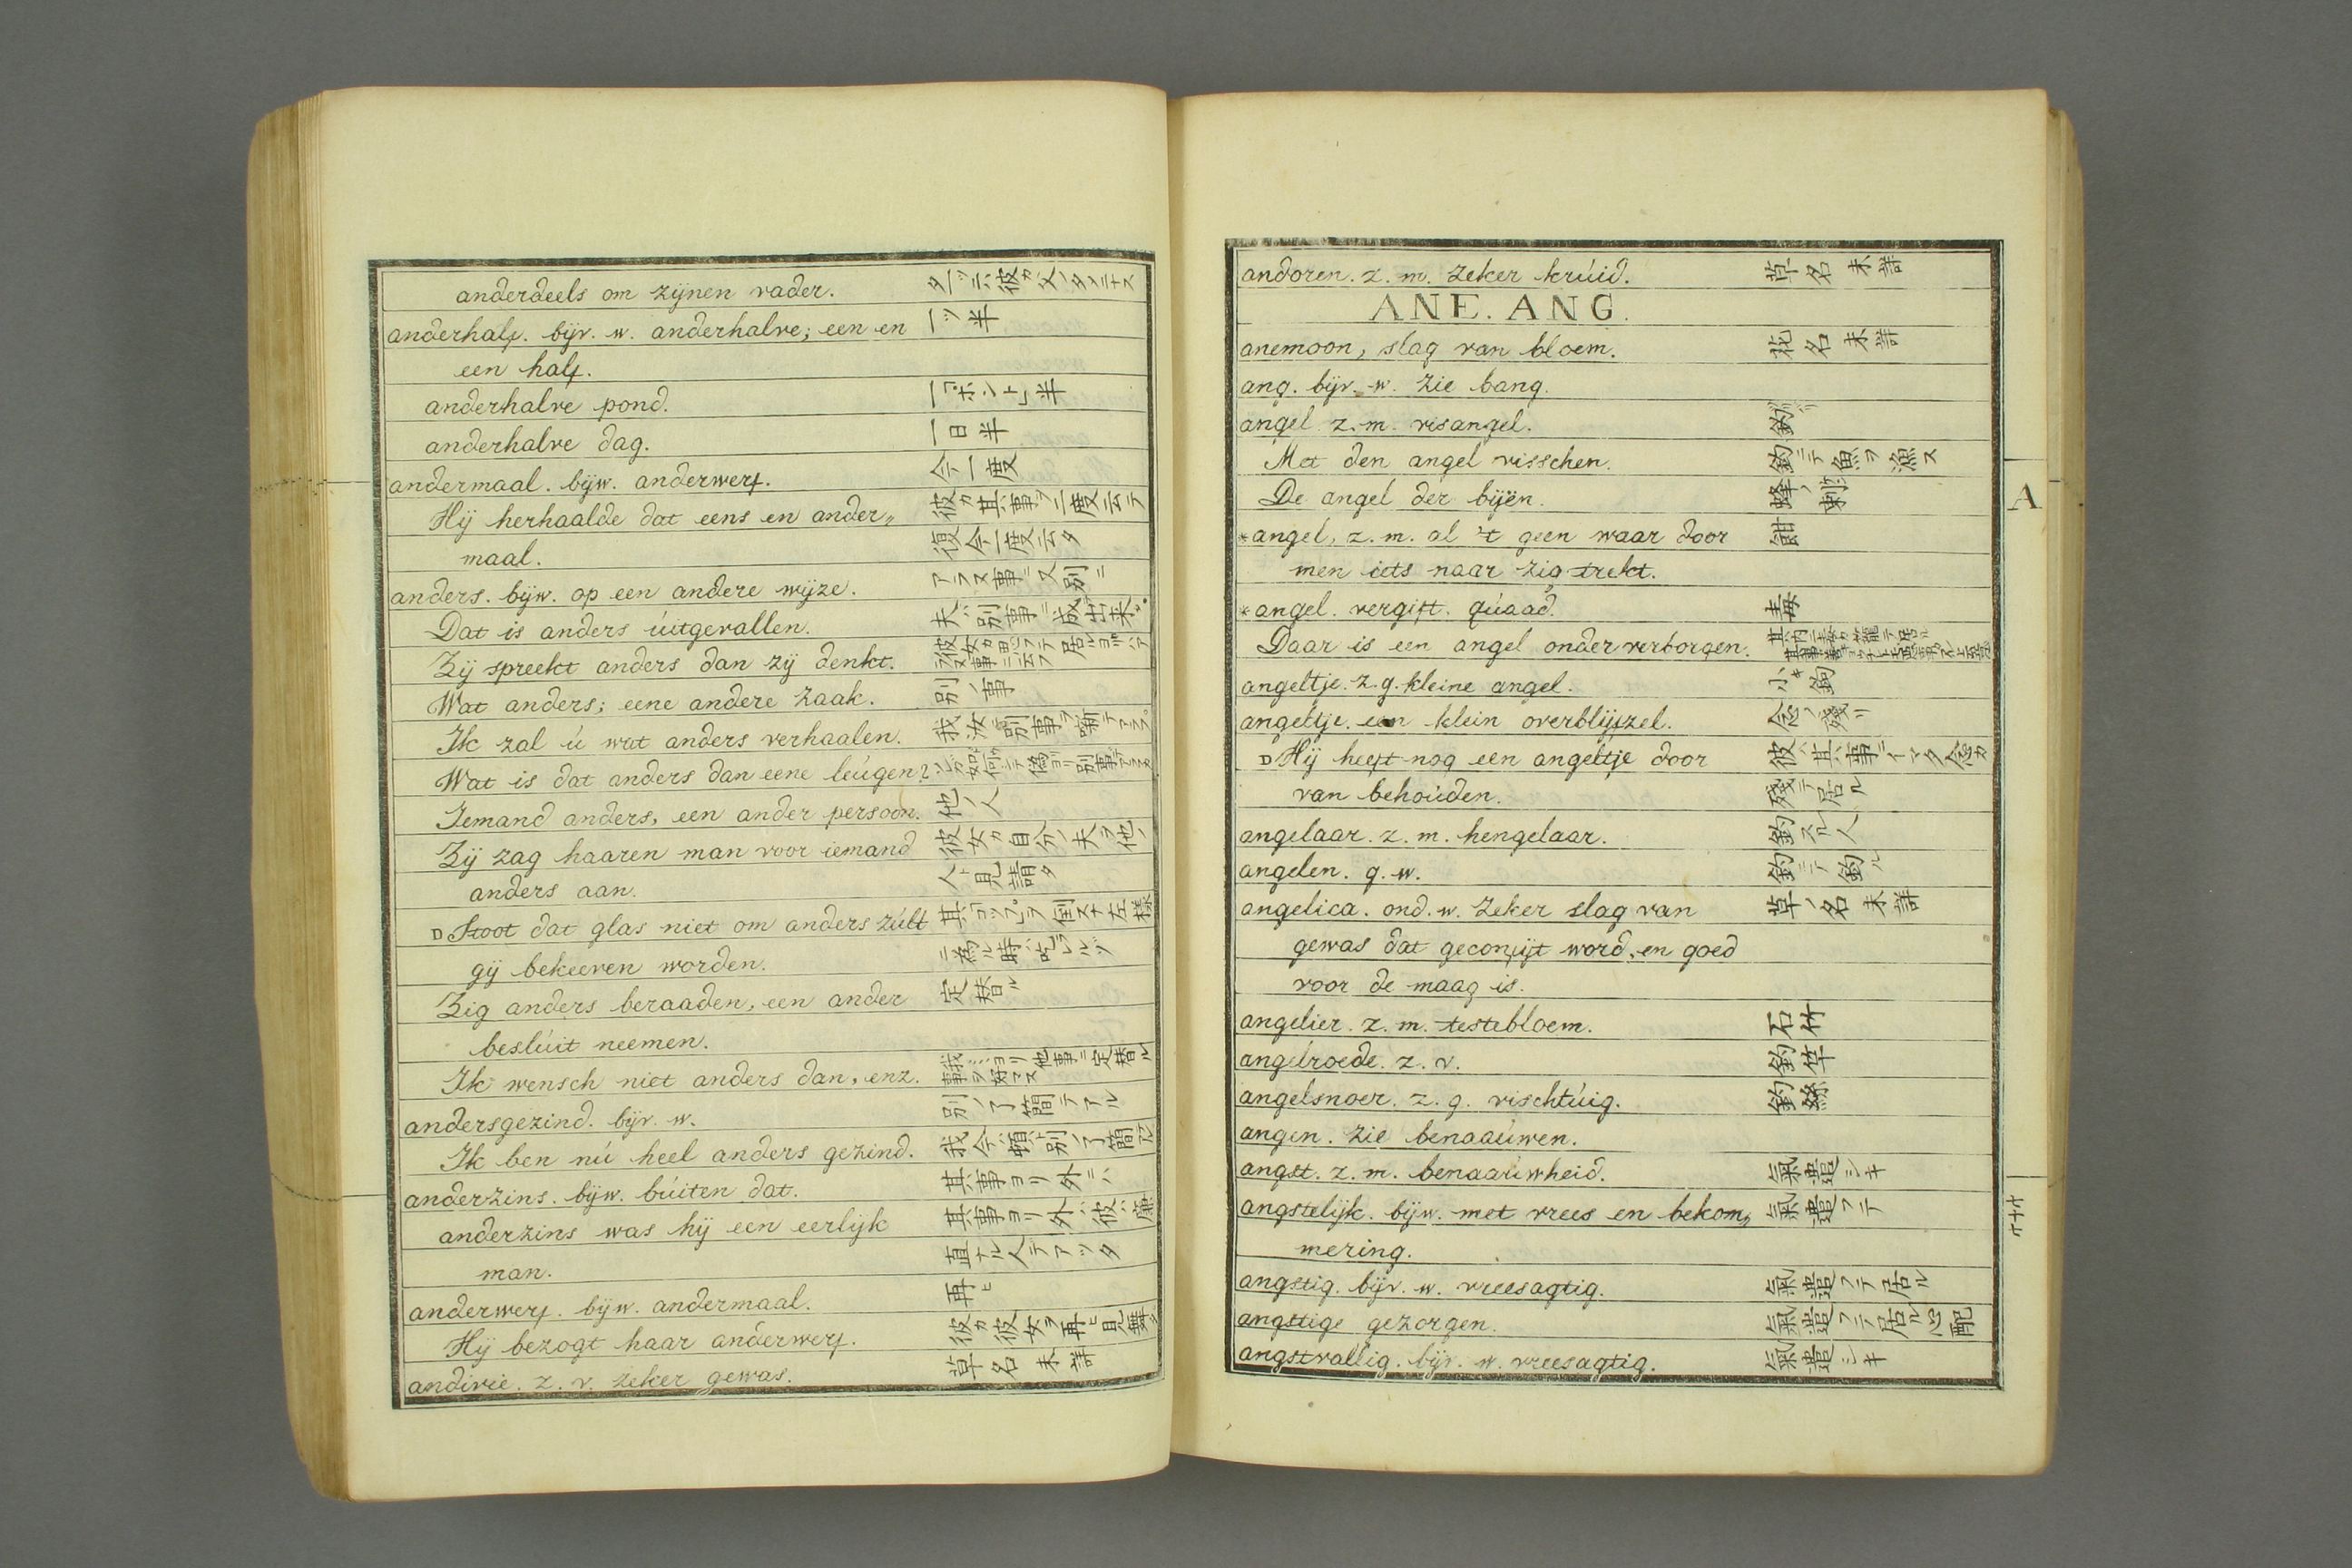 anderdeels om zijnen vader.
anderhalf. bijv. w. anderhalve; een en 一ツ半
een half.
anderhalve pond. 一ポンド半
anderhalve dag. 一日半
andermaal. bijw. anderwerf. 今一度
Hij herhaalde dat eens en ander„ 彼ガ其事ヲ一度云テ
maal. 復今一度云タ
anders. bijw. op een andere wijze. アラヌ事ニ又別ニ
Dat is anders úitgevallen. 夫ハ別事ニ成
Zij spreekt anders dan zij denkt.
Wat anders; eene andere zaak. 別ノ事
Ik zal ú wat anders verhaalen.
Wat is dat anders dan eene leúgen?
Iemand anders, een ander persoon. 他ノ人
Zij zag haaren man voor iemand 彼女ガ自分ノ夫ヲ他ノ
anders aan. 人ト見
D Stoot dat glas niet om anders zúlt 其コップヲ倒スナ左様
gij bekeeven worden.
Zig anders beraaden, een ander 定替ル
beslúit neemen.
Ik wensch niet anders dan, enz.
andersgezind. bijv. w. 別ノ了簡デアル
Ik ben nú heel anders gezind.
anderzins. bijw. búiten dat. 其事ヨリ外ニハ
anderzins was hij een eerlijk 其事ヨリ外ハ彼ハ廉
man. 直ナル人デアツタ
anderwerf. bijw. andermaal. 再ヒ
Hij bezogt haar anderwerf. 彼ガ彼女ヲ再ヒ見舞
andivie. z. v. zeker gewas. 草名未詳
andoren. z. m. zeker krúid. 草名未詳
ANE. ANG.
anemoon, slag van bloem. 花名未詳
ang. bijv. w. zie bang.
angel. z. m. visangel. 釣
Met den angel visschen. 釣ニテ魚ヲ漁ス
De angel der bijën. 蜂ノ刺
*angel, z. m. al 't geen waar door 餌
men iets naar zig trekt.
*angel. vergift. qúaad. 毒
Daar is een angel onder verborgen.
angeltje. z. g. kleine angel. 小キ釣
angeltje. een klein overblijfzel. 念ノ殘リ
D Hij heeft nog een angeltje door 彼ハ其事ニイマタ念ガ
van behoúden. 殘テ居ル
angelaar. z. m. hengelaar. 釣スル人
angelen. g. w. 釣ニテ釣ル
angelica. ond. w. zeker slag van 草ノ名未詳
gewas dat geconfijt word, en goed
voor de maag is.
angelier. z. m. testebloem. 石竹
angelroede. z. v. 釣竿
angelsnoer. z. g. vischtúig. 釣絲
angen. zie benaaúwen.
angst. z. m. benaaúwheid. 氣遣シキ
angstelijk. bijw. met vrees en bekom„ 氣遣フテ
mering.
angstig. bijv. w. vreesagtig. 氣遣フテ居ル
angstige gezorgen. 氣遣フテ居ル心配
angstvallig. bijv. w. vreesagtig. 氣遣シキ
A